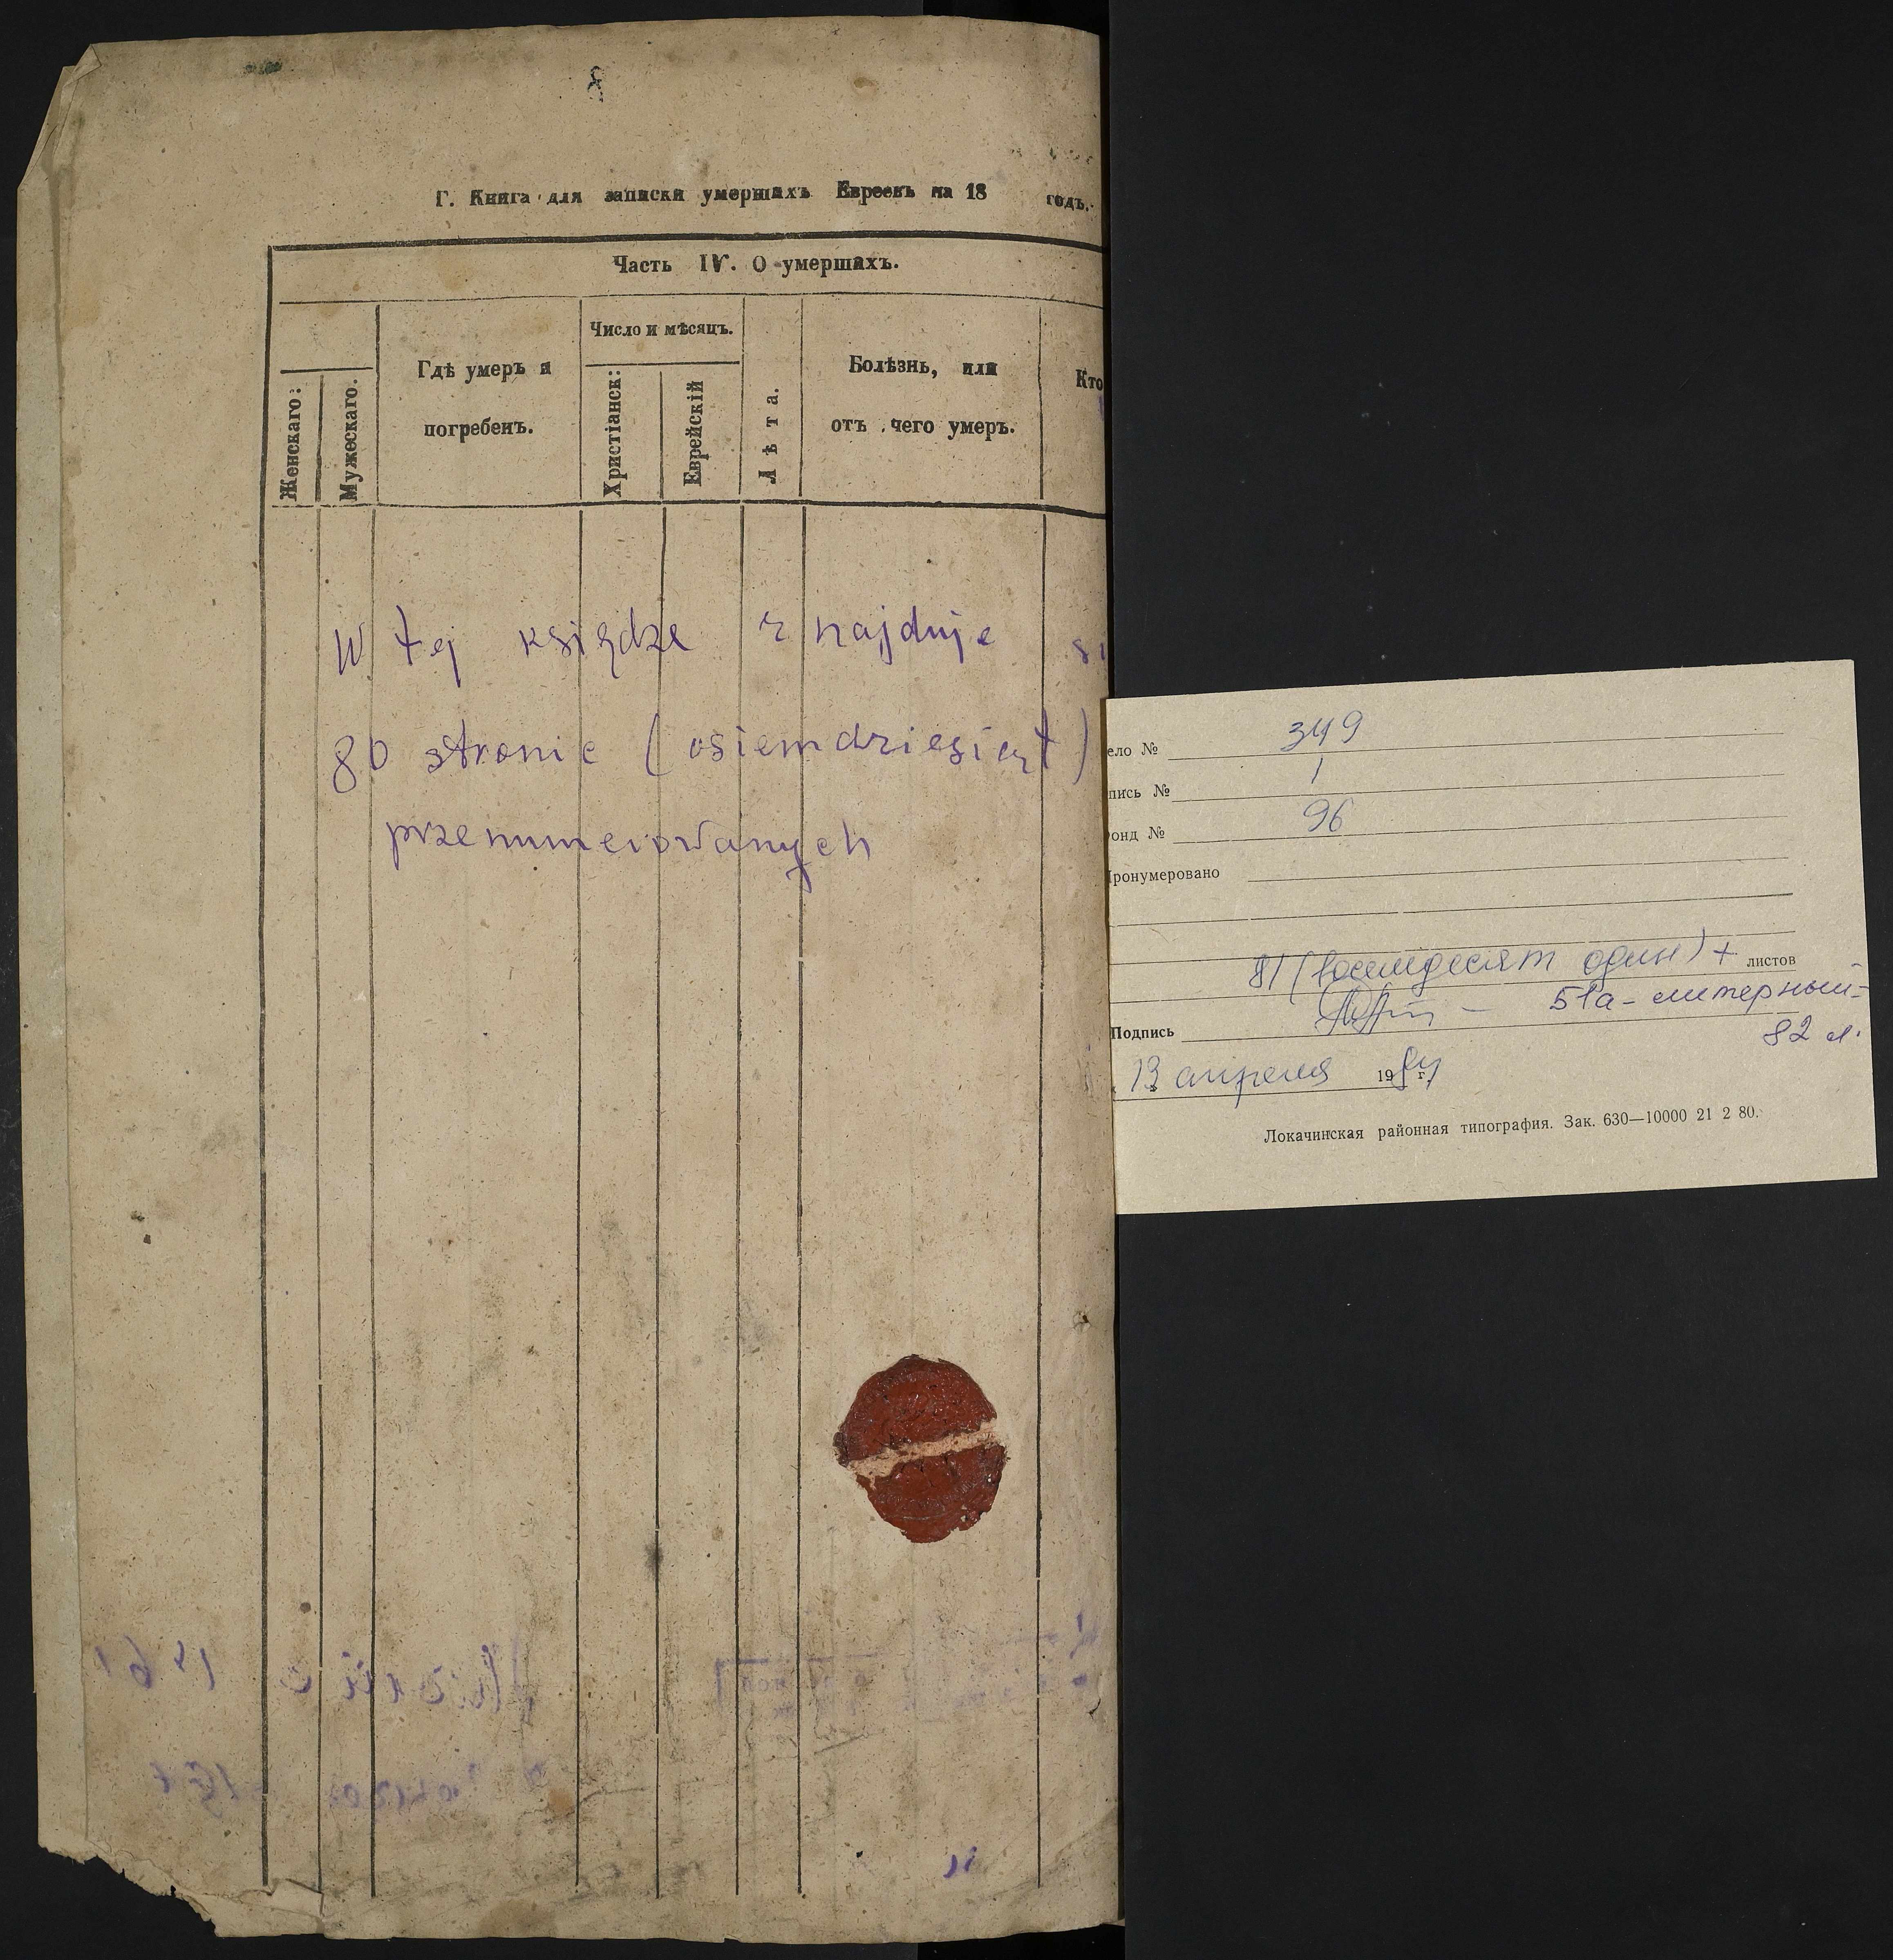 8
Г. Книга для записки умершихъ Евреевъ на 18 годъ.
Часть IV. О умершихъ.
Женскаго:
Мужескаго.
Гдѣ умеръ и
погребенъ.
Число и мѣсяцъ.
Христіанск:
Еврейскій
Лѣта.
Болѣзнь, или
отъ чего умеръ.
Кто
W tej księdze znajduje si
80 stronic (osiemdziesiąt)
przenumerowanych
ело № 349
пись № 1
онд № 96
Пронумеровано
81 (восемдесят один) + листов
51а - литерный-
Подпись
82 л.
13 апреля 1984 г.
Локачинская районная типография. Зак. 630—10000 21 2 80.